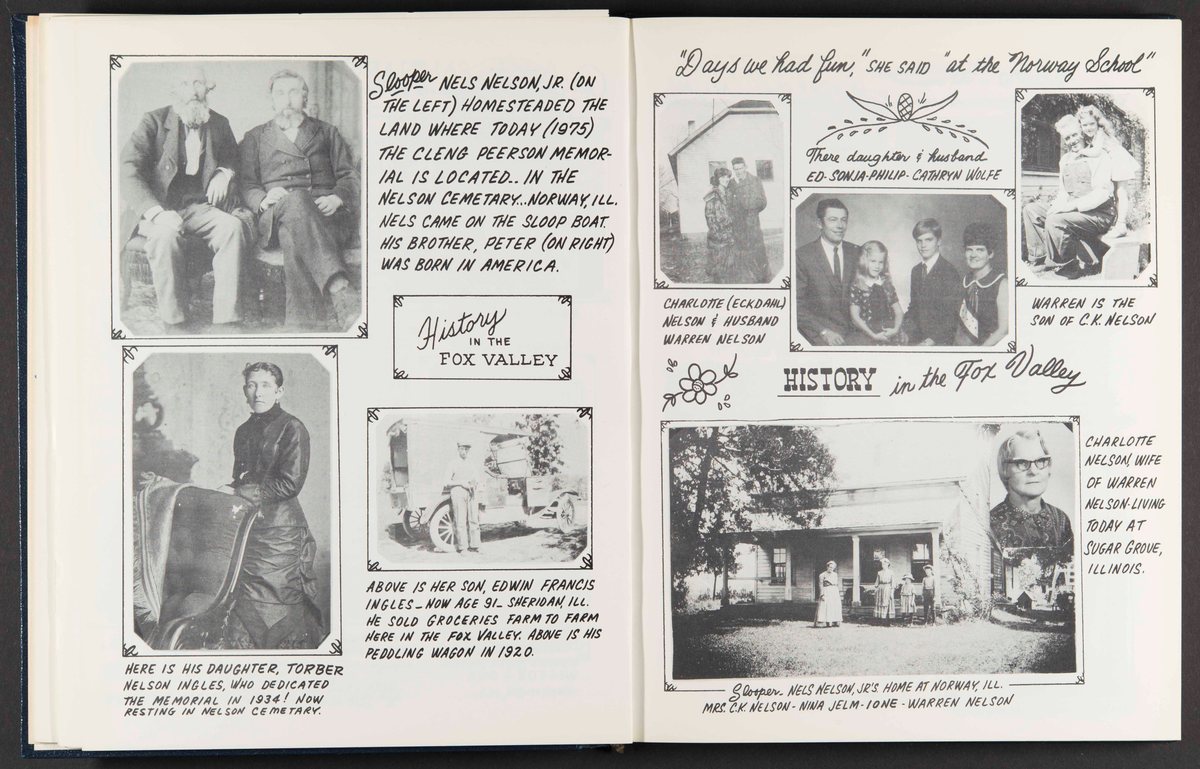 Slooper NELS NELSON, JR. (ON
THE LEFT) HOMESTEADED THE
LAND WHERE TODAY (1975)
THE CLENG PEERSON MEMOR-
IAL IS LOCATED.. IN THE
NELSON CEMETARY..NORWAY, ILL.
NELS CAME ON THE SLOOP BOAT.
HIS BROTHER, PETER (ON RIGHT)
WAS BORN IN AMERICA.
History
IN THE
FOX VALLEY
HERE IS HIS DAUGHTER, TORBER
NELSON INGLES, WHO DEDICATED
THE MEMORIAL IN 1934! NOW
RESTING IN NELSON CEMETARY.
ABOVE IS HER SON, EDWIN FRANCIS
INGLES - NOW AGE 91 - SHERIDAN, ILL.
HE SOLD GROCERIES FARM TO FARM
HERE IN THE FOX VALLEY. ABOVE IS HIS
PEDDLING WAGON IN 1920.
"Days we had fun," SHE SAID "at the Norway School"
There daughter & husband
ED-SONJA-PHILIP-CATHRYN WOLFE
CHARLOTTE (ECKDAHL)
NELSON & HUSBAND
WARREN NELSON
WARREN IS THE
SON OF C.K. NELSON
HISTORY in the Fox Valley
CHARLOTTE
NELSON, WIFE
OF WARREN
NELSON-LIVING
TODAY AT
SUGAR GROVE,
ILLINOIS.
Slooper NELS NELSON, JR'S HOME AT NORWAY, ILL.
MRS. C.K. NELSON - NINA JELM - IONE - WARREN NELSON